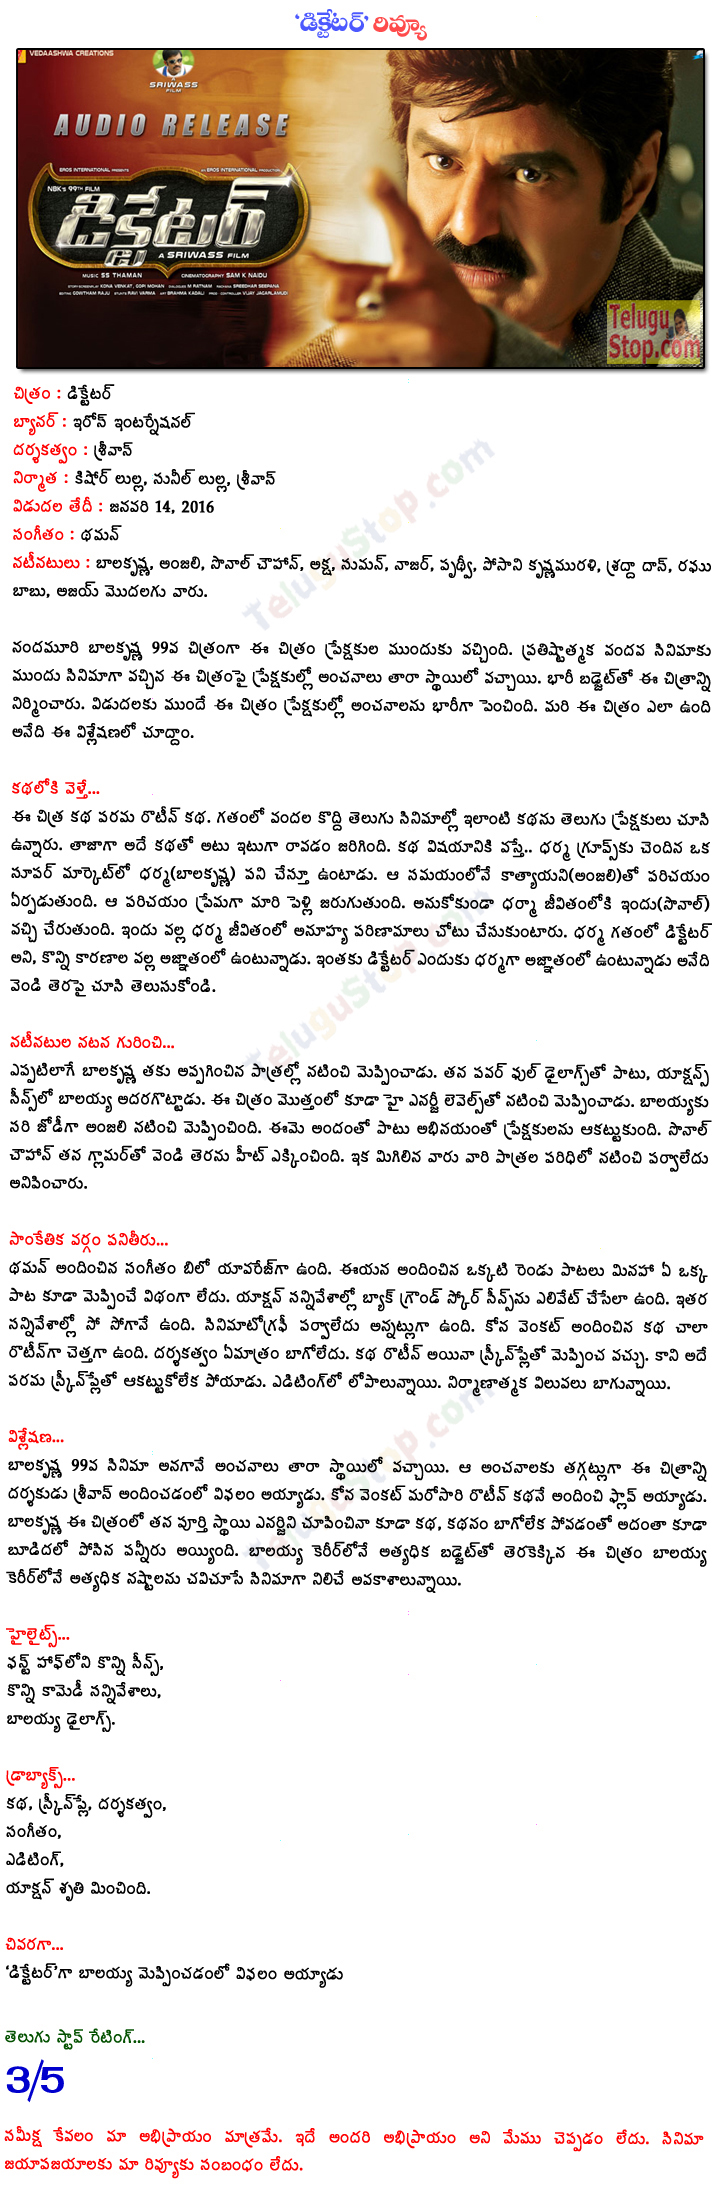 ‘డిక్టేటర్’ రివ్యూ
VEDAASHWA CREATIONS
A
SRIWASS
FILM
AUDIO RELEASE
EROS INTERNATIONAL PRESENTS
AN EROS INTERNATIONAL PRODUCTION
NBK's 99TH FILM
డిక్టేటర్
A SRIWASS FILM
MUSIC SS THAMAN CINEMATOGRAPHY SAM K NAIDU
STORY SCREENPLAY KONA VENKAT, GOPI MOHAN DIALOGUES M RATNAM RACHANA SREEDHAR SEEPANA
EDITING GOWTHAM RAJU STUNTS RAVI VARMA ART BRAHMA KADALI PROD. CONTROLLER VIJAY JAGARLAMUDI
Telugu
Stop.com
చిత్రం : డిక్టేటర్
బ్యానర్ : ఇరోస్ ఇంటర్నేషనల్
దర్శకత్వం : శ్రీవాస్
నిర్మాత : కిషోర్ లుల్ల, సునీల్ లుల్ల, శ్రీవాస్
విడుదల తేదీ : జనవరి 14, 2016
సంగీతం : థమన్
నటీనటులు : బాలకృష్ణ, అంజలి, సొనాల్ చౌహాన్, అక్ష, సుమన్, నాజర్, పృథ్వీ, పోసాని కృష్ణమురళి, శ్రద్దా దాస్, రఘు
బాబు, అజయ్ మొదలగు వారు.
నందమూరి బాలకృష్ణ 99వ చిత్రంగా ఈ చిత్రం ప్రేక్షకుల ముందుకు వచ్చింది. ప్రతిష్టాత్మక వందవ సినిమాకు
ముందు సినిమాగా వచ్చిన ఈ చిత్రంపై ప్రేక్షకుల్లో అంచనాలు తారా స్థాయిలో వచ్చాయి. భారీ బడ్జెట్‌తో ఈ చిత్రాన్ని
నిర్మించారు. విడుదలకు ముందే ఈ చిత్రం ప్రేక్షకుల్లో అంచనాలను భారీగా పెంచింది. మరి ఈ చిత్రం ఎలా ఉంది
అనేది ఈ విశ్లేషణలో చూద్దాం.
కథలోకి వెళ్తే...
ఈ చిత్ర కథ పరమ రొటీన్ కథ. గతంలో వందల కొద్ది తెలుగు సినిమాల్లో ఇలాంటి కథను తెలుగు ప్రేక్షకులు చూసి
ఉన్నారు. తాజాగా అదే కథతో అటు ఇటుగా రావడం జరిగింది. కథ విషయానికి వస్తే.. ధర్మ గ్రూప్స్‌కు చెందిన ఒక
సూపర్ మార్కెట్‌లో ధర్మ(బాలకృష్ణ) పని చేస్తూ ఉంటాడు. ఆ సమయంలోనే కాత్యాయని(అంజలి)తో పరిచయం
ఏర్పడుతుంది. ఆ పరిచయం ప్రేమగా మారి పెళ్లి జరుగుతుంది. అనుకోకుండా ధర్మా జీవితంలోకి ఇందు(సొనాల్)
వచ్చి చేరుతుంది. ఇందు వల్ల ధర్మ జీవితంలో అనూహ్య పరిణామాలు చోటు చేసుకుంటారు. ధర్మ గతంలో డిక్టేటర్
అని, కొన్ని కారణాల వల్ల అజ్ఞాతంలో ఉంటున్నాడు. ఇంతకు డిక్టేటర్ ఎందుకు ధర్మగా అజ్ఞాతంలో ఉంటున్నాడు అనేది
వెండి తెరపై చూసి తెలుసుకోండి.
నటీనటుల నటన గురించి...
ఎప్పటిలాగే బాలకృష్ణ తకు అప్పగించిన పాత్రల్లో నటించి మెప్పించాడు. తన పవర్ ఫుల్ డైలాగ్స్‌తో పాటు, యాక్షన్స్
సీన్స్‌లో బాలయ్య అదరగొట్టాడు. ఈ చిత్రం మొత్తంలో కూడా హై ఎనర్జీ లెవెల్స్‌తో నటించి మెప్పించాడు. బాలయ్యకు
సరి జోడీగా అంజలి నటించి మెప్పించింది. ఈమె అందంతో పాటు అభినయంతో ప్రేక్షకులను ఆకట్టుకుంది. సొనాల్
చౌహాన్ తన గ్లామర్‌తో వెండి తెరను హీట్ ఎక్కించింది. ఇక మిగిలిన వారు వారి పాత్రల పరిధిలో నటించి పర్వాలేదు
అనిపించారు.
సాంకేతిక వర్గం పనితీరు...
థమన్ అందించిన సంగీతం బిలో యావరేజ్‌గా ఉంది. ఈయన అందించిన ఒక్కటి రెండు పాటలు మినహా ఏ ఒక్క
పాట కూడా మెప్పించే విధంగా లేదు. యాక్షన్ సన్నివేశాల్లో బ్యాక్ గ్రౌండ్ స్కోర్ సీన్స్‌ను ఎలివేట్ చేసేలా ఉంది. ఇతర
సన్నివేశాల్లో సో సోగానే ఉంది. సినిమాటోగ్రఫీ పర్వాలేదు అన్నట్లుగా ఉంది. కోన వెంకట్ అందించిన కథ చాలా
రొటీన్‌గా చెత్తగా ఉంది. దర్శకత్వం ఏమాత్రం బాగోలేదు. కథ రొటీన్ అయినా స్క్రీన్‌ప్లేతో మెప్పించ వచ్చు. కాని అదే
పరమ స్క్రీన్‌ప్లేతో ఆకట్టుకోలేక పోయాడు. ఎడిటింగ్‌లో లోపాలున్నాయి. నిర్మాణాత్మక విలువలు బాగున్నాయి.
విశ్లేషణ...
బాలకృష్ణ 99వ సినిమా అనగానే అంచనాలు తారా స్థాయిలో వచ్చాయి. ఆ అంచనాలకు తగ్గట్లుగా ఈ చిత్రాన్ని
దర్శకుడు శ్రీవాస్ అందించడంలో విఫలం అయ్యాడు. కోన వెంకట్ మరోసారి రొటీన్ కథనే అందించి ఫ్లాప్ అయ్యాడు.
బాలకృష్ణ ఈ చిత్రంలో తన పూర్తి స్థాయి ఎనర్జిని చూపించినా కూడా కథ, కథనం బాగోలేక పోవడంతో అదంతా కూడా
బూడిదలో పోసిన పన్నీరు అయ్యింది. బాలయ్య కెరీర్‌లోనే అత్యధిక బడ్జెట్‌తో తెరకెక్కిన ఈ చిత్రం బాలయ్య
కెరీర్‌లోనే అత్యధిక నష్టాలను చవిచూసే సినిమాగా నిలిచే అవకాశాలున్నాయి.
హైలైట్స్...
ఫస్ట్ హాఫ్‌లోని కొన్ని సీన్స్,
కొన్ని కామెడీ సన్నివేశాలు,
బాలయ్య డైలాగ్స్.
డ్రాబ్యాక్స్...
కథ, స్క్రీన్‌ప్లే, దర్శకత్వం,
సంగీతం,
ఎడిటింగ్,
యాక్షన్ శృతి మించింది.
చివరగా...
‘డిక్టేటర్’గా బాలయ్య మెప్పించడంలో విఫలం అయ్యాడు
తెలుగు స్టాప్ రేటింగ్...
3/5
సమీక్ష కేవలం మా అభిప్రాయం మాత్రమే. ఇదే అందరి అభిప్రాయం అని మేము చెప్పడం లేదు. సినిమా
జయాపజయాలకు మా రివ్యూకు సంబంధం లేదు.